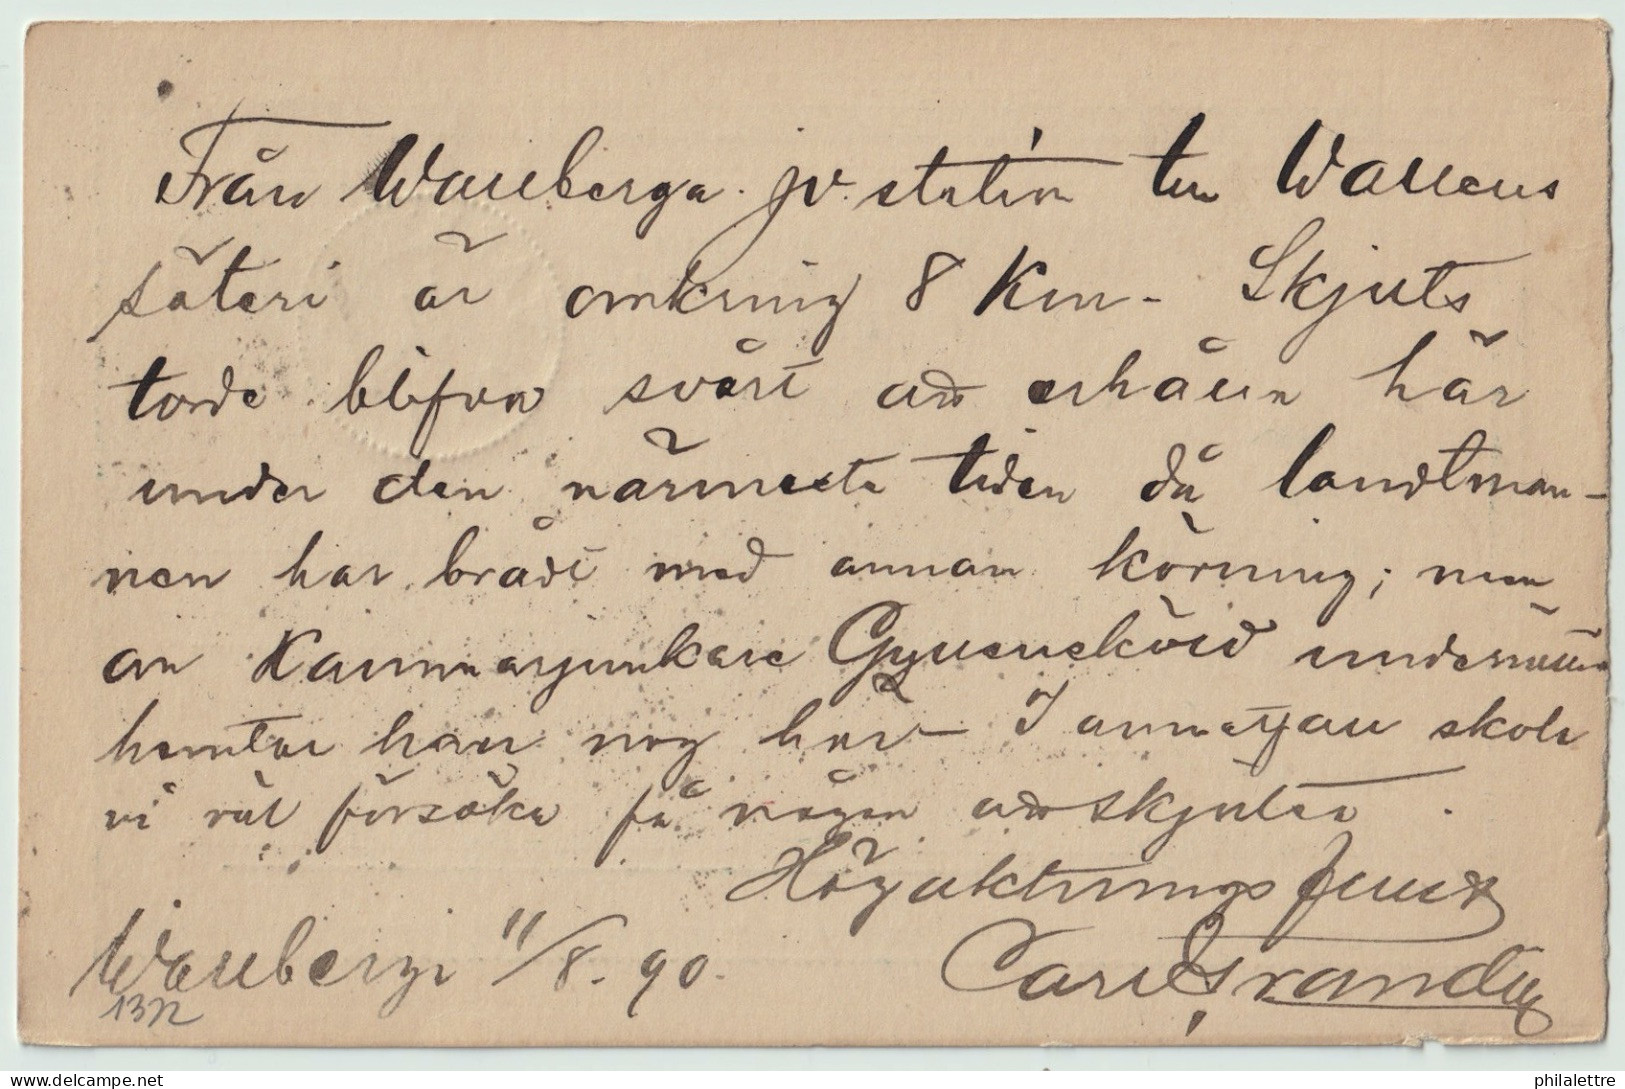 Från Wallberga jv. station till Wallens
säteri är omkring 8 Km - Skjuts
torde blifva svårt att erhålla här
under den närmaste tiden då landtman-
nen har brådt med annan körning; men
om Kammarjunkare Gyllensköld underrättas
hemtar han nog här - I annat fall skola
vi väl försöka få någon att skjutsa.
Högaktningsfullt
Wallberga 11/8. 90. Carl Strandell
1372
philalettre